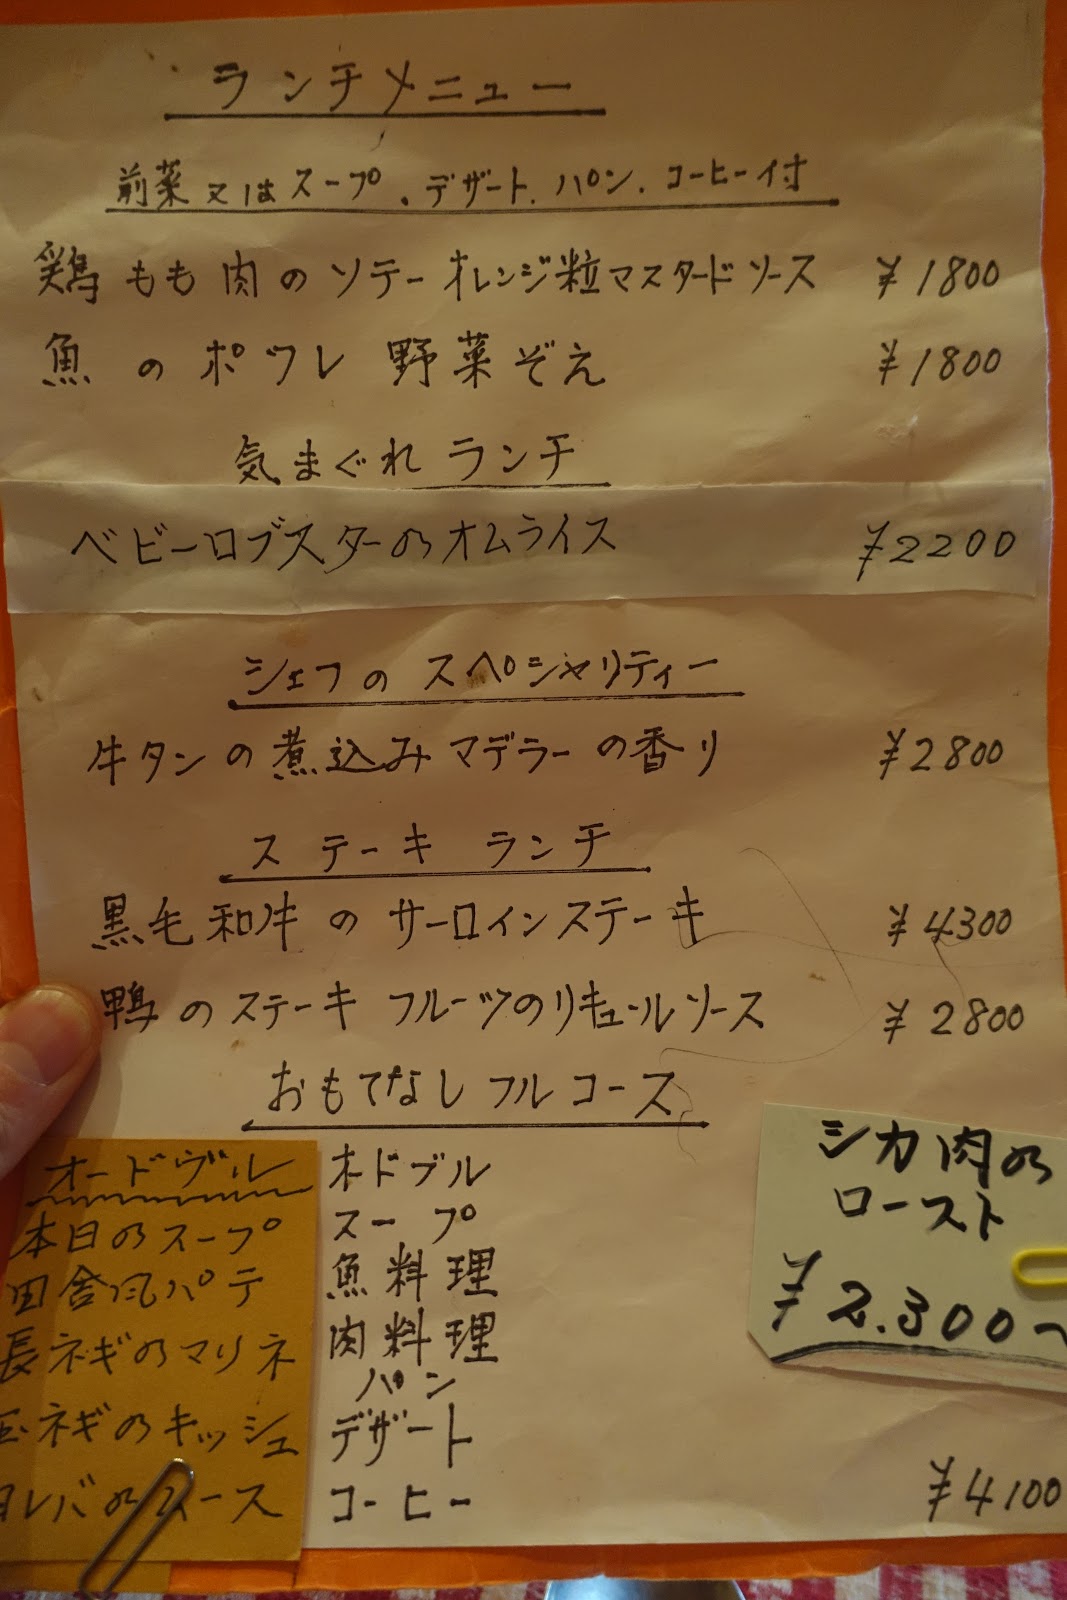 ランチメニュー
前菜又はスープ、デザート、パン、コーヒー付
鶏もも肉のソテーオレンジ粒マスタードソース ¥1800
魚のポワレ 野菜ぞえ ¥1800
気まぐれランチ
ベビーロブスターのオムライス ¥2200
シェフのスペシャリティー
牛タンの煮込みマデラーの香り ¥2800
ステーキ ランチ
黒毛和牛のサーロインステーキ ¥4300
鴨のステーキ フルーツのリキュールソース ¥2800
おもてなしフルコース
オードブル
スープ
魚料理
肉料理
パン
デザート
コーヒー ¥4100
オードヴル
本日のスープ
田舎風パテ
長ネギのマリネ
玉ネギのキッシュ
レバのムース
シカ肉の
ロースト
¥2.300〜